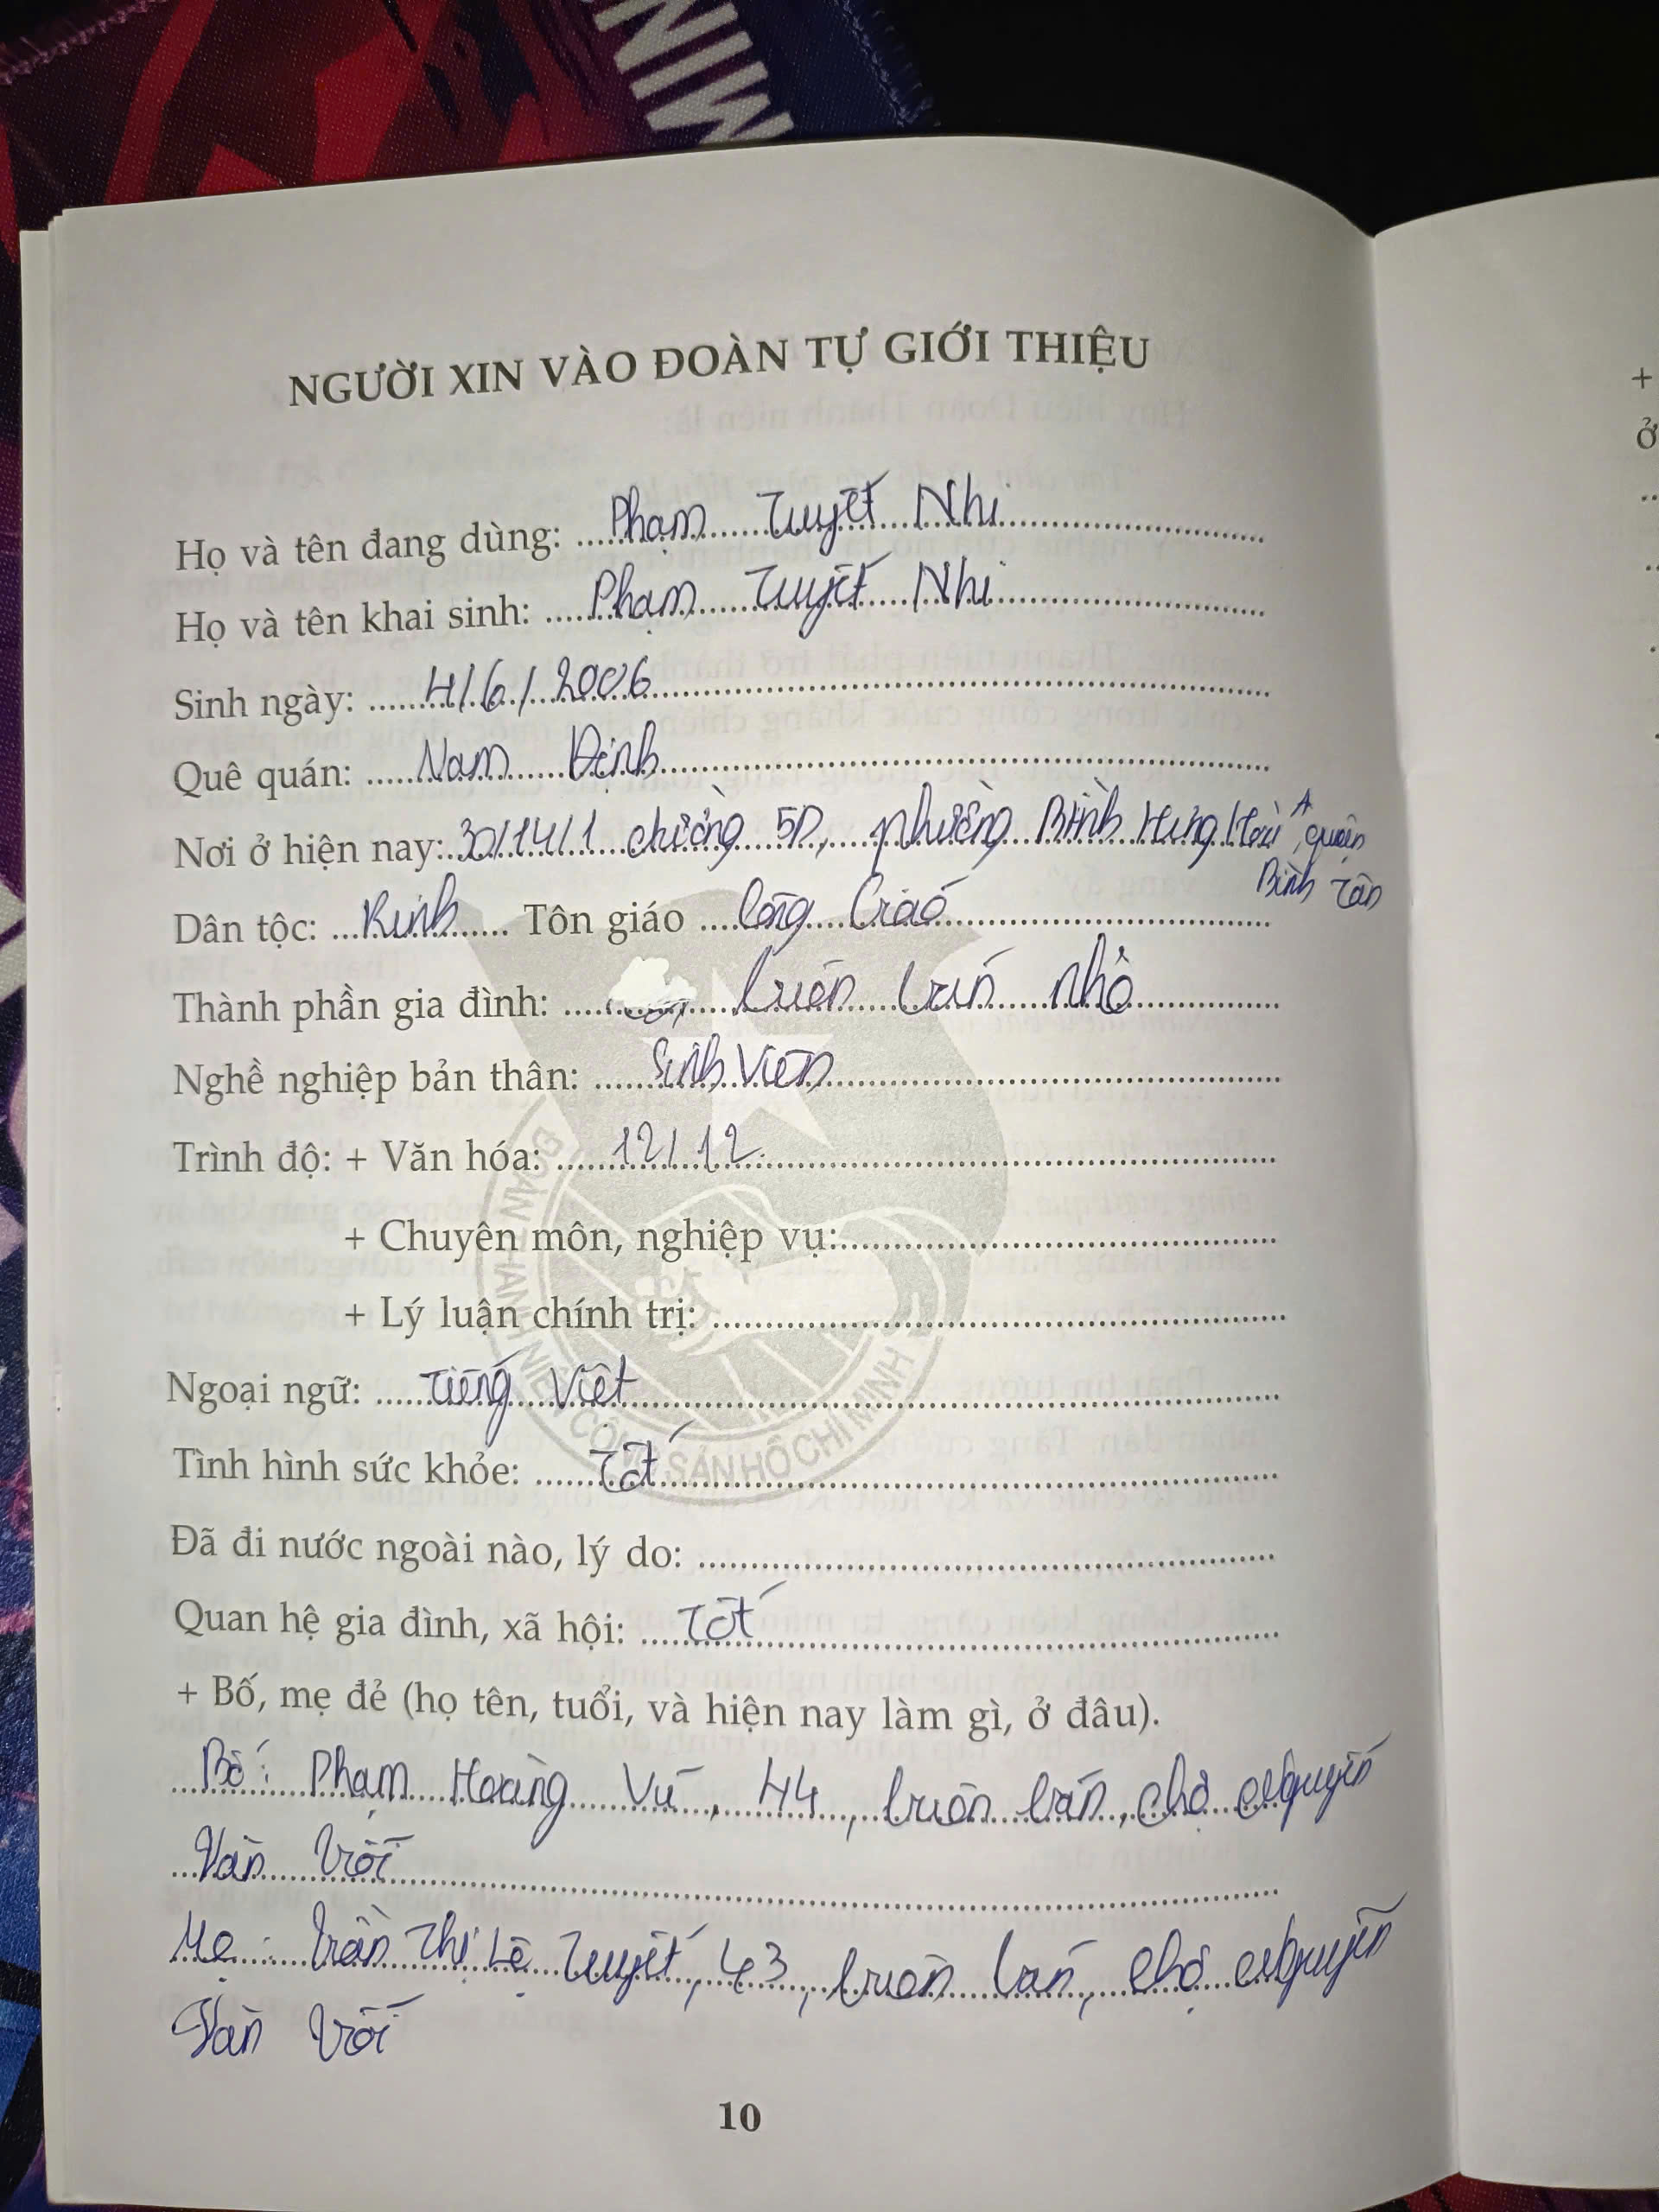 MIN
NGƯỜI XIN VÀO ĐOÀN TỰ GIỚI THIỆU
Họ và tên đang dùng: Phạm Tuyết Nhi
Họ và tên khai sinh: Phạm Tuyết Nhi
Sinh ngày: 4/6/2006
Quê quán: Nam Định
Nơi ở hiện nay: 30/14/1 đường 5D, phường Bình Hưng Hoà A, quận
Bình Tân
Dân tộc: Kinh Tôn giáo Công Giáo
Thành phần gia đình: buôn bán nhỏ
Nghề nghiệp bản thân: Sinh Viên
Trình độ: + Văn hóa: 12/12
+ Chuyên môn, nghiệp vụ:
+ Lý luận chính trị:
Ngoại ngữ: Tiếng Việt
Tình hình sức khỏe: Tốt
Đã đi nước ngoài nào, lý do:
Quan hệ gia đình, xã hội: Tốt
+ Bố, mẹ đẻ (họ tên, tuổi, và hiện nay làm gì, ở đâu).
Bố: Phạm Hoàng Vũ, 44, buôn bán, chợ Nguyễn
Văn Trỗi
Mẹ: Trần Thị Lệ Tuyết, 43, buôn bán, chợ Nguyễn
Văn Trỗi
10
ĐOÀN THANH NIÊN CỘNG SẢN HỒ CHÍ MINH
+
ở